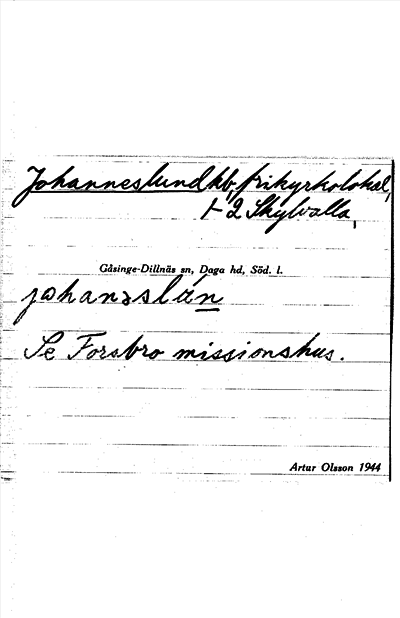 Johanneslund kb, frikyrkolokal,
1-2 Skylvalla,
Gåsinge-Dillnäs sn, Daga hd, Söd. l.
johanəslán
Se Forsbro missionshus.
Artur Olsson 1944